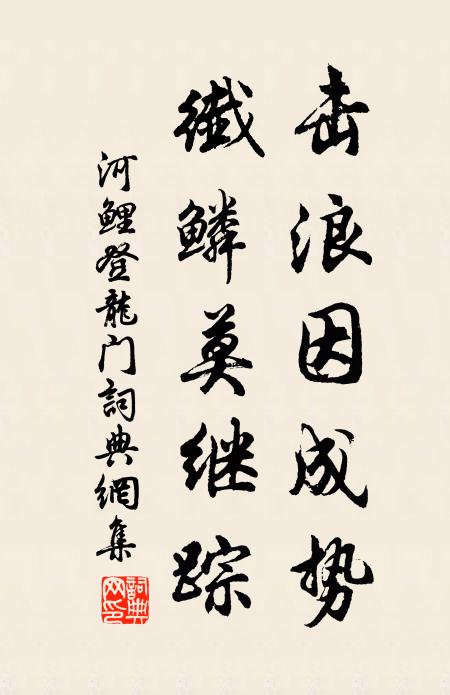 击浪因成势
纖鳞莫继踪
河鯉登龍门詞典網集
詞典网印